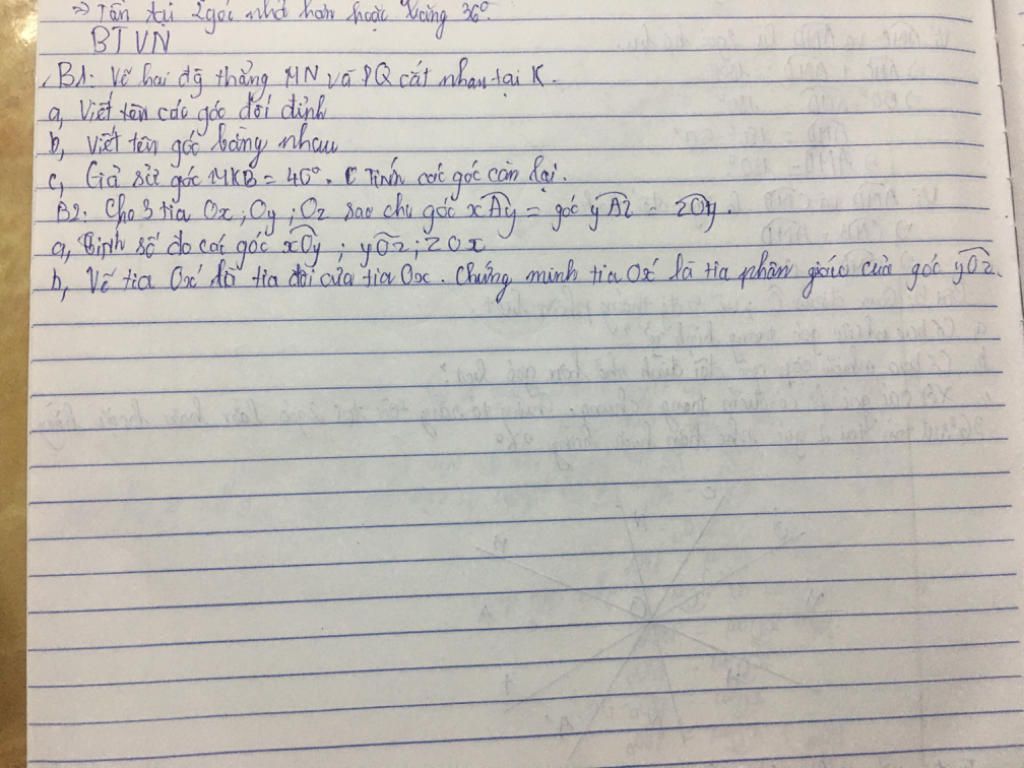 => Tồn tại 2 góc nhỏ hơn hoặc bằng 36°.
BTVN
B1: Vẽ hai đg thẳng MN và PQ cắt nhau tại K.
a, Viết tên các góc đối đỉnh
b, Viết tên góc bằng nhau
c, Giả sử góc MKB = 40°. Tính các góc còn lại.
B2: Cho 3 tia Ox; Oy; Oz sao cho góc xAy = góc yAz = zOy.
a, Tính số đo các góc xOy; yOz; zOx
b, Vẽ tia Ox' tia đối của tia Ox. Chứng minh tia Ox' là tia phân giác của góc yOz.